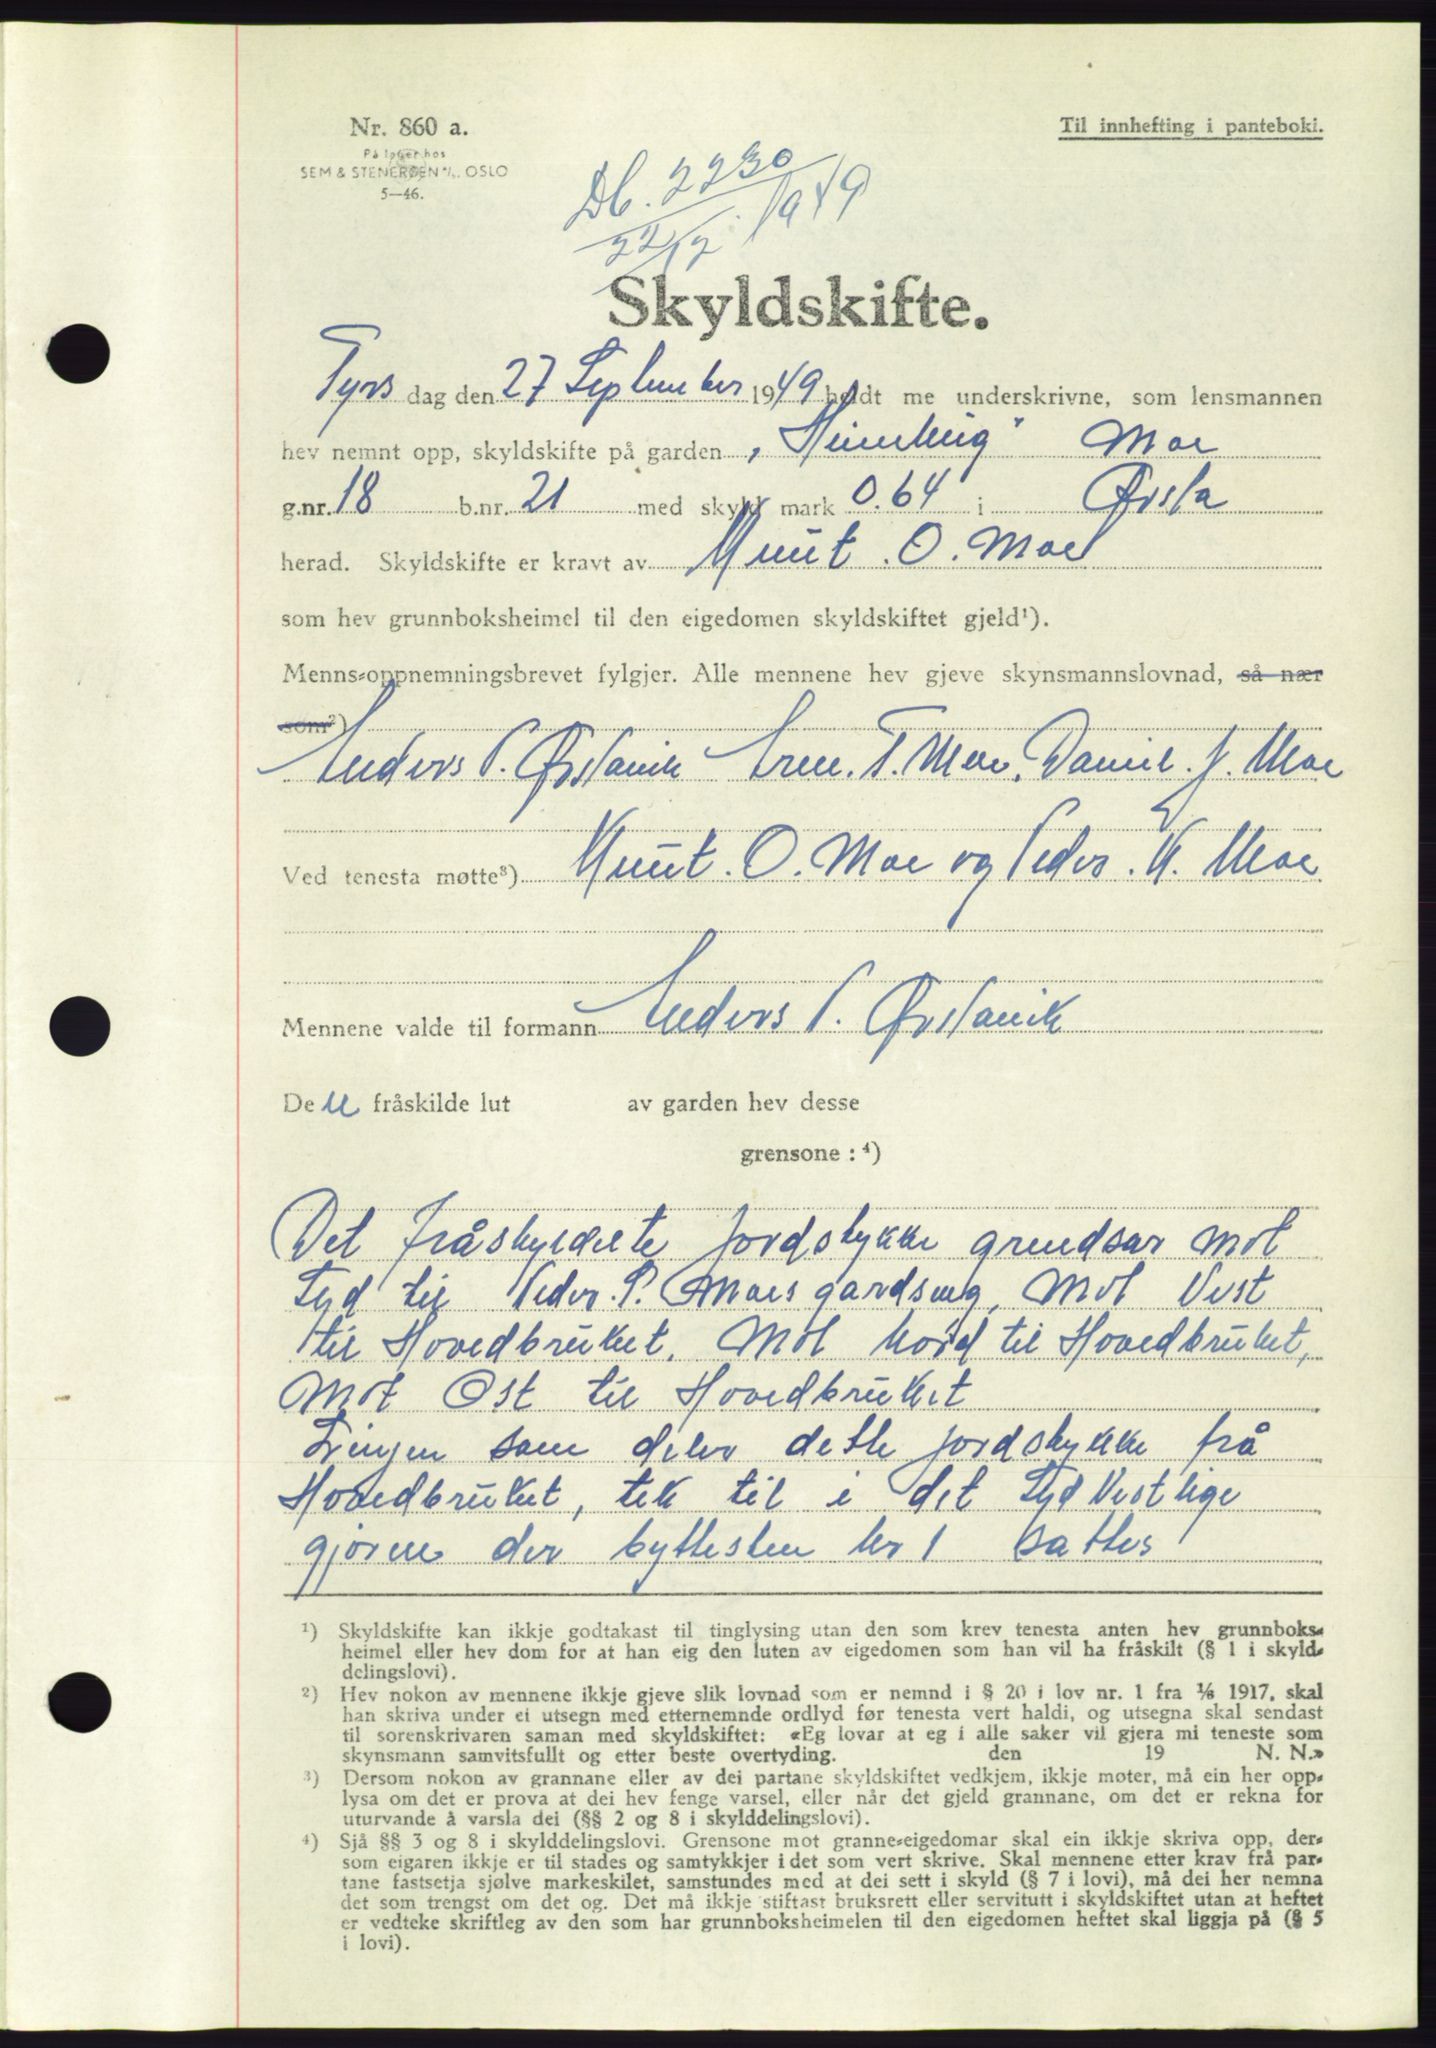 Nr. 860 a.
Til innhefting i panteboki.
På lager hos
SEM & STENERSEN A/S. OSLO
5—46.
Db. 2230
22/12 1949
Skyldskifte.
Tyrs dag den 27 September 1949 heldt me underskrivne, som lensmannen
hev nemnt opp, skyldskifte på garden Moe
g.nr. 18 b.nr. 21 med skyld mark 0.64 i Ørsta
herad. Skyldskifte er kravt av Knut. O. Moe
som hev grunnboksheimel til den eigedomen skyldskiftet gjeld¹).
Menns-oppnemningsbrevet fylgjer. Alle mennene hev gjeve skynsmannslovnad, så nær
som²)
Anders P. Ørstavik T. Moe, Daniel. J. Moe
Ved tenesta møtte³) Knut. O. Moe og Peder. K. Moe
Mennene valde til formann Anders P. Ørstavik
De n fråskilde lut av garden hev desse
grensone : ⁴)
Det fråskyldelte jordstykke grendsar mot
Syd til Peder. P. Moes mot Vest
til Hovedbruket. Mot Nord til Hovedbruket,
Mot Ost til Hovedbruket
Linjen som deler dette jordstykke frå
Hovedbruket, tek til i det Sydvestlige
hjørne der byttesten Nr 1 sattes
¹) Skyldskifte kan ikkje godtakast til tinglysing utan den som krev tenesta anten hev grunnboks-
heimel eller hev dom for at han eig den luten av eigedomen som han vil ha fråskilt (§ 1 i skyld-
delingslovi).
²) Hev nokon av mennene ikkje gjeve slik lovnad som er nemnd i § 20 i lov nr. 1 fra ⅛ 1917, skal
han skriva under ei utsegn med etternemnde ordlyd før tenesta vert haldi, og utsegna skal sendast
til sorenskrivaren saman med skyldskiftet: «Eg lovar at eg i alle saker vil gjera mi teneste som
skynsmann samvitsfullt og etter beste overtyding. den 19 N. N.»
³) Dersom nokon av grannane eller av dei partane skyldskiftet vedkjem, ikkje møter, må ein her opp-
lysa om det er prova at dei hev fenge varsel, eller når det gjeld grannane, om det er rekna for
uturvande å varsla dei (§§ 2 og 8 i skylddelingslovi).
⁴) Sjå §§ 3 og 8 i skylddelingslovi. Grensone mot granne-eigedomar skal ein ikkje skriva opp, der-
som eigaren ikkje er til stades og samtykkjer i det som vert skrive. Skal mennene etter krav frå par-
tane fastsetja sjølve markeskilet, samstundes med at dei sett i skyld (§ 7 i lovi), må dei her nemna
det som trengst om det og. Det må ikkje stiftast bruksrett eller servitutt i skyldskiftet utan at heftet
er vedteke skriftleg av den som har grunnboksheimelen til den eigedomen heftet skal liggja på (§ 5
i lovi).